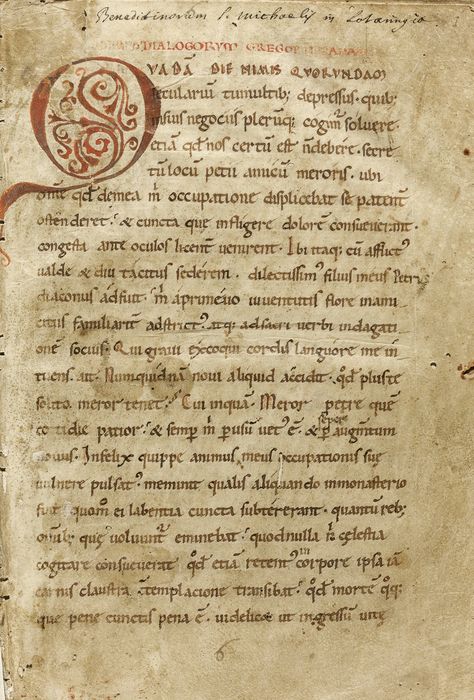 Benedictinorum S. Michaelis in Lotaringia
DIALOGORVM GREGORII PAPAE
QVADĀ DIE NIMIS QVORVNDĀ
seculariū tumultib; depressus. quib;
insuis negociis plerūq; cogim̄ soluere
etiā qđ nos certum est n̄debere. secre
tū locū petii amicū meroris. ubi
omne qđ demea m̄ occupatione displicebat se patent̄
ostenderet. & cuncta que infligere dolorē consueuerant.
congesta ante oculos licent̄ uenirent. Ibi itaq; cū afflict⁹
ualde & diu tacitus sederem. dilectissim⁹ filius meus Petr⁹
diaconus adfuit. m̄ aprimeuo iuuentutis flore in ami
citiis familiarit̄ adstrict⁹. atq; adsacri uerbi indagati
onē socius. Qui graui excoqui cordis languore me in
tuens. ait. Nunquidnā noui aliquid accidit. qđ pluste
solito meror tenet. Cui inquam. Meror petre quē
cotidie patior. & semp m̄ p usum uet⁹ ē. & semper p augm̄tum
nouus. Infelix quippe animus meus occupationis sue
uulnere pulsat⁹ meminit qualis aliquando inmonasterio
fuit. quom̄ ei labentia cuncta subtererant. quantū reb;
omīb; que uoluunt̄ eminebat. quod nulla n̄ celestia
cogitare consueuerat. qđ etiā retent⁹ in corpore ipsa iā
carnis claustra cōtemplacione transibat. qđ mortē q̄q;
que pene cunctis pena ē. uidelicet ut ingressum uite
6